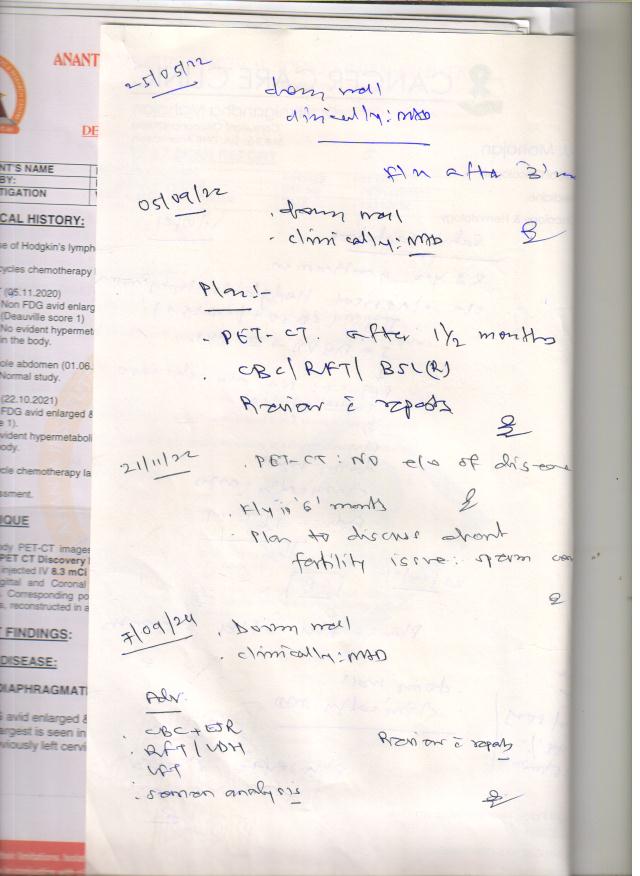 ANANT
DE
NT'S NAME
BY:
TIGATION
CAL HISTORY:
se of Hodgkin's lymph
cycles chemotherapy
(05.11.2020)
Non FDG avid enlarg
(Deauville score 1)
No evident hypermet
in the body.
ole abdomen (01.06.
Normal study.
(22.10.2021)
FDG avid enlarged &
e 1).
vident hypermetaboli
ody.
cle chemotherapy la
ssment.
IQUE
dy PET-CT images
PET CT Discovery
injected IV 8.3 mCi
gittal and Coronal
. Corresponding po
s, reconstructed in a
FINDINGS:
DISEASE:
IAPHRAGMATI
avid enlarged &
argest is seen in
viously left cervi
25/05/22
doing well
clinically: NAD
after '3' m
05/09/22
. doing well
. clinically: NAD
Plan:-
. PET-CT. after 1½ months
. CBC/RFT/ BSL(R)
Review c̄ reports
21/11/22
. PET-CT: NO e/o of disease
. F/u in '6' months
. Plan to discuss about
fertility issue: sperm
7/09/24
. Doing well
. clinically: NAD
Adv.
. CBC + ESR
. RFT/LDH
LFT
. semen analysis
Review c̄ reports